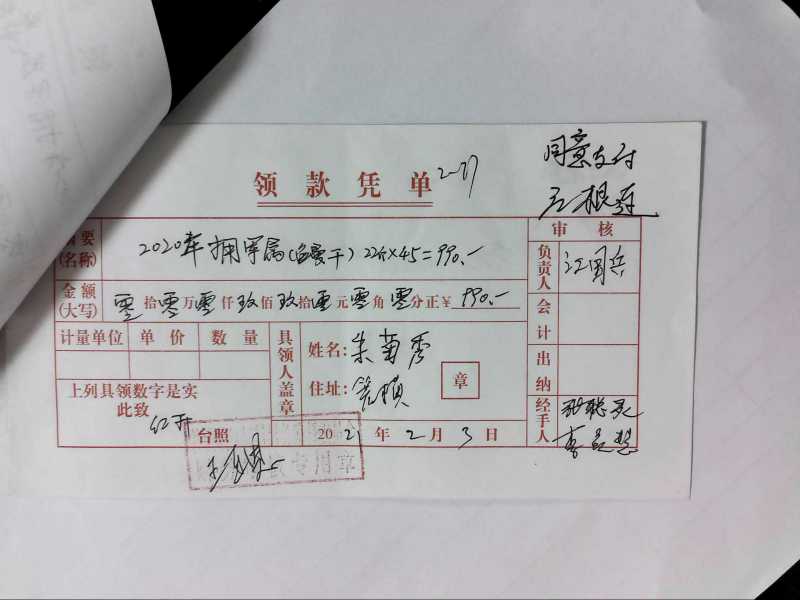 同意支付
领款凭单
2-27
审核
摘要
(名称)
2020年拥军属( ) 22个×45=990.-
负责人
江国兵
金额
(大写)
零拾零万零仟玖佰玖拾零元零角零分正¥ 990.-
会计
计量单位 单价 数量
具领人盖章
姓名:朱菊秀
住址:
章
出纳
上列具领数字是实
此致
台照
2021年2月3日
经手人
专用章